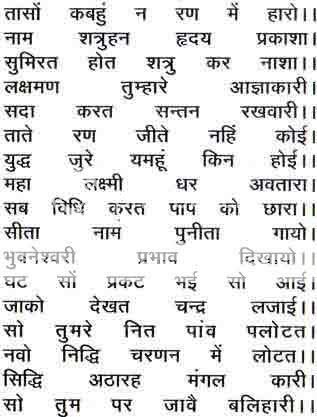 तासों कबहुं न रण में हारो।।
नाम शत्रुहन हृदय प्रकाशा।
सुमिरत होत शत्रु कर नाशा।।
लक्षमण तुम्हारे आज्ञाकारी।
सदा करत सन्तन रखवारी।।
ताते रण जीते नहिं कोई।
युद्ध जुरे यमहूं किन होई।।
महा लक्ष्मी धर अवतारा।
सब विधि करत पाप को छारा।।
सीता नाम पुनीता गायो।
भुवनेश्वरी प्रभाव दिखायो।।
घट सों प्रकट भई सो आई।
जाको देखत चन्द्र लजाई।।
सो तुमरे नित पांव पलोटत।
नवो निद्धि चरणन में लोटत।।
सिद्धि अठारह मंगल कारी।
सो तुम पर जावै बलिहारी।।